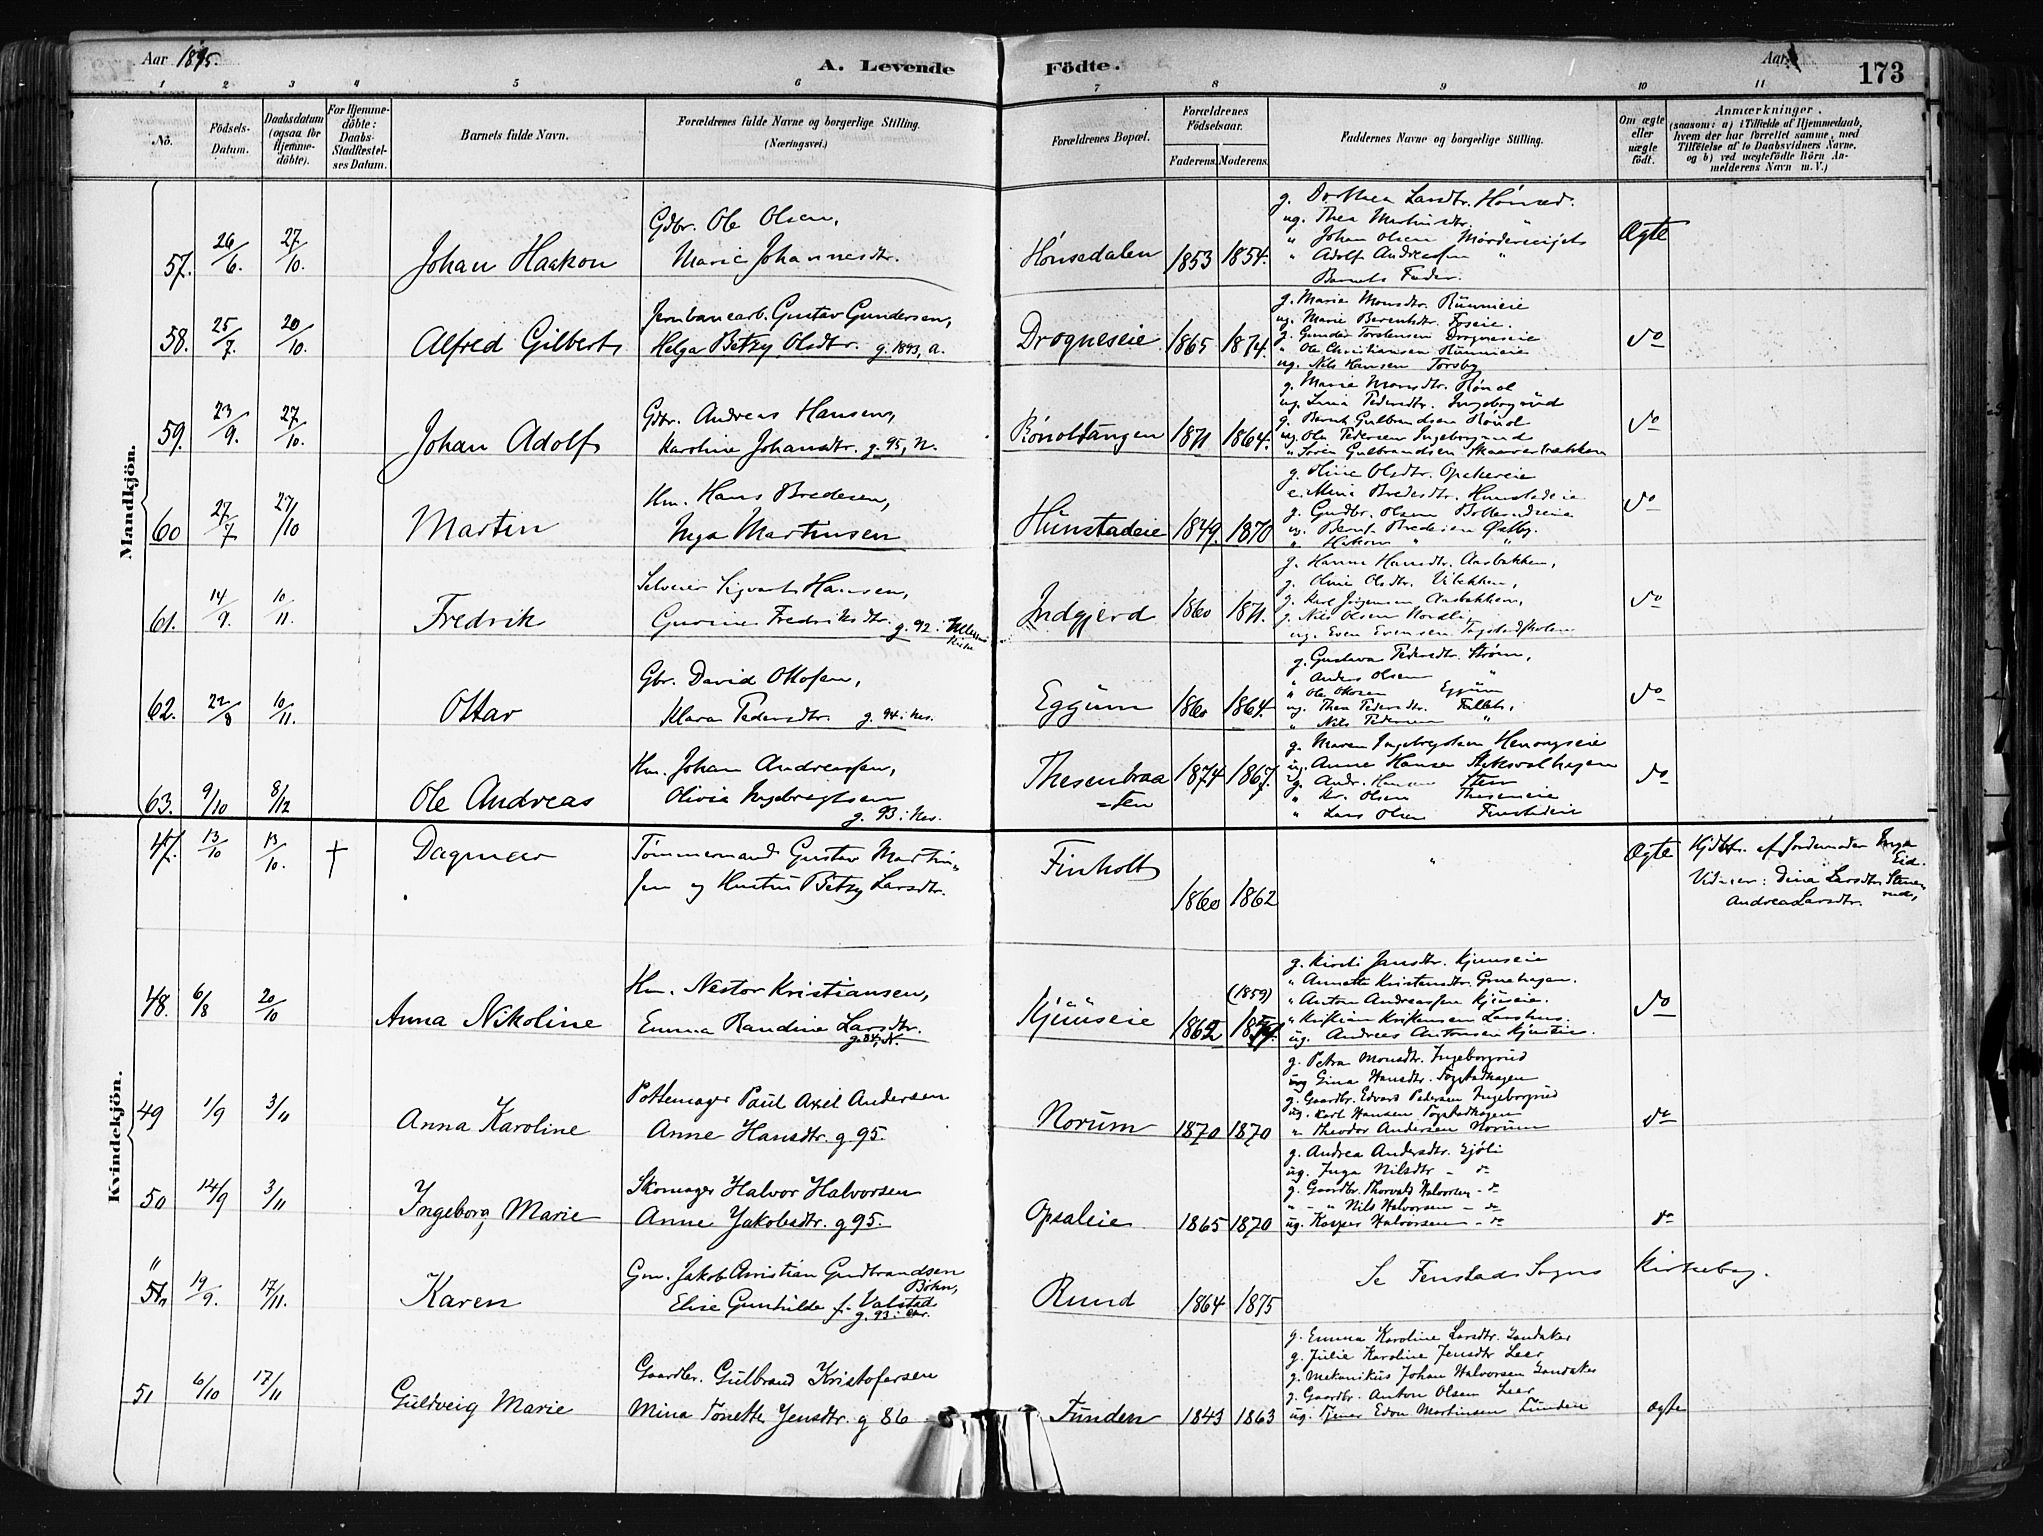 Aar 1895.
A. Levende Födte.
Aar
173
1 2 3 4 5 6 7 8 9 10 11
No.
Födsels-Datum.
Daabsdatum (ogsaa for Hjemme-döbte).
For Hjemme-döbte: Daabs-Stadfestelses Datum.
Barnets fulde Navn.
Forældrenes fulde Navne og borgerlige Stilling. (Næringsvei.)
Forældrenes Bopæl.
Forældrenes Födselsaar.
Faderens. Moderens.
Faddernes Navne og borgerlige Stilling.
Om ægte eller uægte födt.
Anmærkninger.
(saasom: a) i Tilfælde af Hjemmedaab,
hvem der har forrettet samme, med
Tilföielse af to Daabsvidners Navne,
og b) ved uægtefödte Börn An-
melderens Navn m. V.)
Mandkjön.
57. 26/6. 27/10. Johan Haakon
Gdbr. Ole Olsen,
Marie Johannesdtr.
Hönsedalen 1853 1854.
g. Dorthea Larsdtr. Hönsed.
ug. Thea Martinsdtr. "
" Johan Olsen
" Adolf Andreasen "
Barnets Fader.
Ægte
58. 25/7. 20/10. Alfred Gilbert
Jernbanearb. Gustav Gundersen,
Helga Betzy Olsdtr. g. 1893, a.
Drogneseie 1865 1874.
g. Marie Monsdtr.
ug. Marie Berentsdtr. Foseie.
g. Gunder Torstensen Drogneseie
" Ole Christiansen
ug. Nils Hansen Torsby
do
59. 23/9. 27/10. Johan Adolf
Gdbr. Andreas Hansen,
Karoline Johansdtr. g. 95, N.
Rönoltangen 1871 1864.
g. Marie Monsdtr. Rönol
ug. Lina Pedersdtr. Ingeborgrud
g. Bernt Gulbrandsen Rönol
ug. Ole Pedersen Ingeborgrud
" Sören Gulbrandsen
do
60 27/7 27/10 Martin
Hm. Hans Bredesen,
Inga Martinsen
Hunstadeie 1849. 1870
g. Oline Olsdtr.
e. Mina Bredesdtr. Hunstadeie
g. Gudbr. Olsen
ug. Bernt Bredesen Østby.
" Hakon " "
do
61. 14/9. 10/11. Fredrik
Selveier Sigvart Hansen,
Gurine Fredriksdtr. g. 92.
Indgjerd 1860 1871.
g. Hanna Hansdtr. Aasbakken,
g. Oline Olsdtr.
g. Karl Jörgensen Aasbakken,
g. Nils Olsen Nordli,
ug. Even Evensen
do
62. 22/8 10/11. Ottar
Gbr. David Ottosen,
Klara Pedersdtr. g. 94: Nes.
Eggum 1860 1864.
g. Gustava Pedersdtr. Ström,
" Anders Olsen "
" Ole Ottosen Eggum
ug. Thea Pedersdtr. Fallet,
" Nils Pedersen "
do
63. 9/10 8/12 Ole Andreas
Hm. Johan Andreassen,
Olivia Ingebregtsen
g. 93: Nes.
Thesenbraa
=ten
1874 1867.
g. Maren Ingebregtsen
ug. Anne Hansen
g. Andr. Hansen
" Kr. Olsen Theseneie
" Lars Olsen Funstadeie
do
Kvindekjön.
47. 13/10 13/10. † Dagmar
Tömmermand Gustav Martin-
sen og Hustru Betzy Larsdtr.
Finholt
1860 1862
"
Ægte
Hjdbt. af Jordemoder Inga Eid.
Vidner: Dina Larsdtr.
Andrea Larsdtr.
48. 6/8 20/10 Anna Nikoline
Hm. Nestor Kristiansen,
Emma Randine Larsdtr.
g. 84, N.
Kjuuseie 1862 (1859)
g. Kirsti Jensdtr. Kjuuseie
" Annette Kristensdtr.
" Anton Andreassen Kjuuseie.
" Kristian Kristensen
ug. Andreas Antonsen Kjuuseie.
do
49 1/9 3/11 Anna Karoline
Pottemager Paul Axel Andersen
Anne Hansdtr. g 95.
Norum 1870 1870
g. Petra Monsdtr. Ingeborgrud
ug Gina Hansdtr. Fogstadhagen
g. Gaardbr. Edvard Pedersen Ingeborgrud
ug. Karl Hansen Fogstadhagen
" Theodor Andersen Norum
do
50 14/9 3/11 Ingeborg Marie
Skomager Halvor Halvorsen
Anne Jakobsdtr. g 95.
Opsaleie 1865 1870
g. Andrea Andersdtr. Sjöli
ug. Inga Nilsdtr - do
g. Gaardbr. Thorvald Halvorsen - do
" - " Nils Halvorsen - do
ug. Kasper Halvorsen - do
do
" 51" 19/9. 17/11. Karen
Gm. Jakob Christian Gudbrandsen
Böhn,
Elise Gunhilde f. Valstad
g. 93:
Rund 1864 1875
Se Fenstads Sogns Kirkebog.
51 6/10 17/11 Guldveig Marie
Gaardbr. Gulbrand Kristofersen
Mina Tonette Jensdtr. g 86
Funden 1843 1863
g. Emma Karoline Larsdtr. Sandaker
g. Julie Karoline Jensdtr Leer
g. Mekanikus Johan Halvorsen Sandaker
g. Gaardbr. Anton Olsen Leer
ug. Tjener Edon Martinsen Fundeie
Ægte